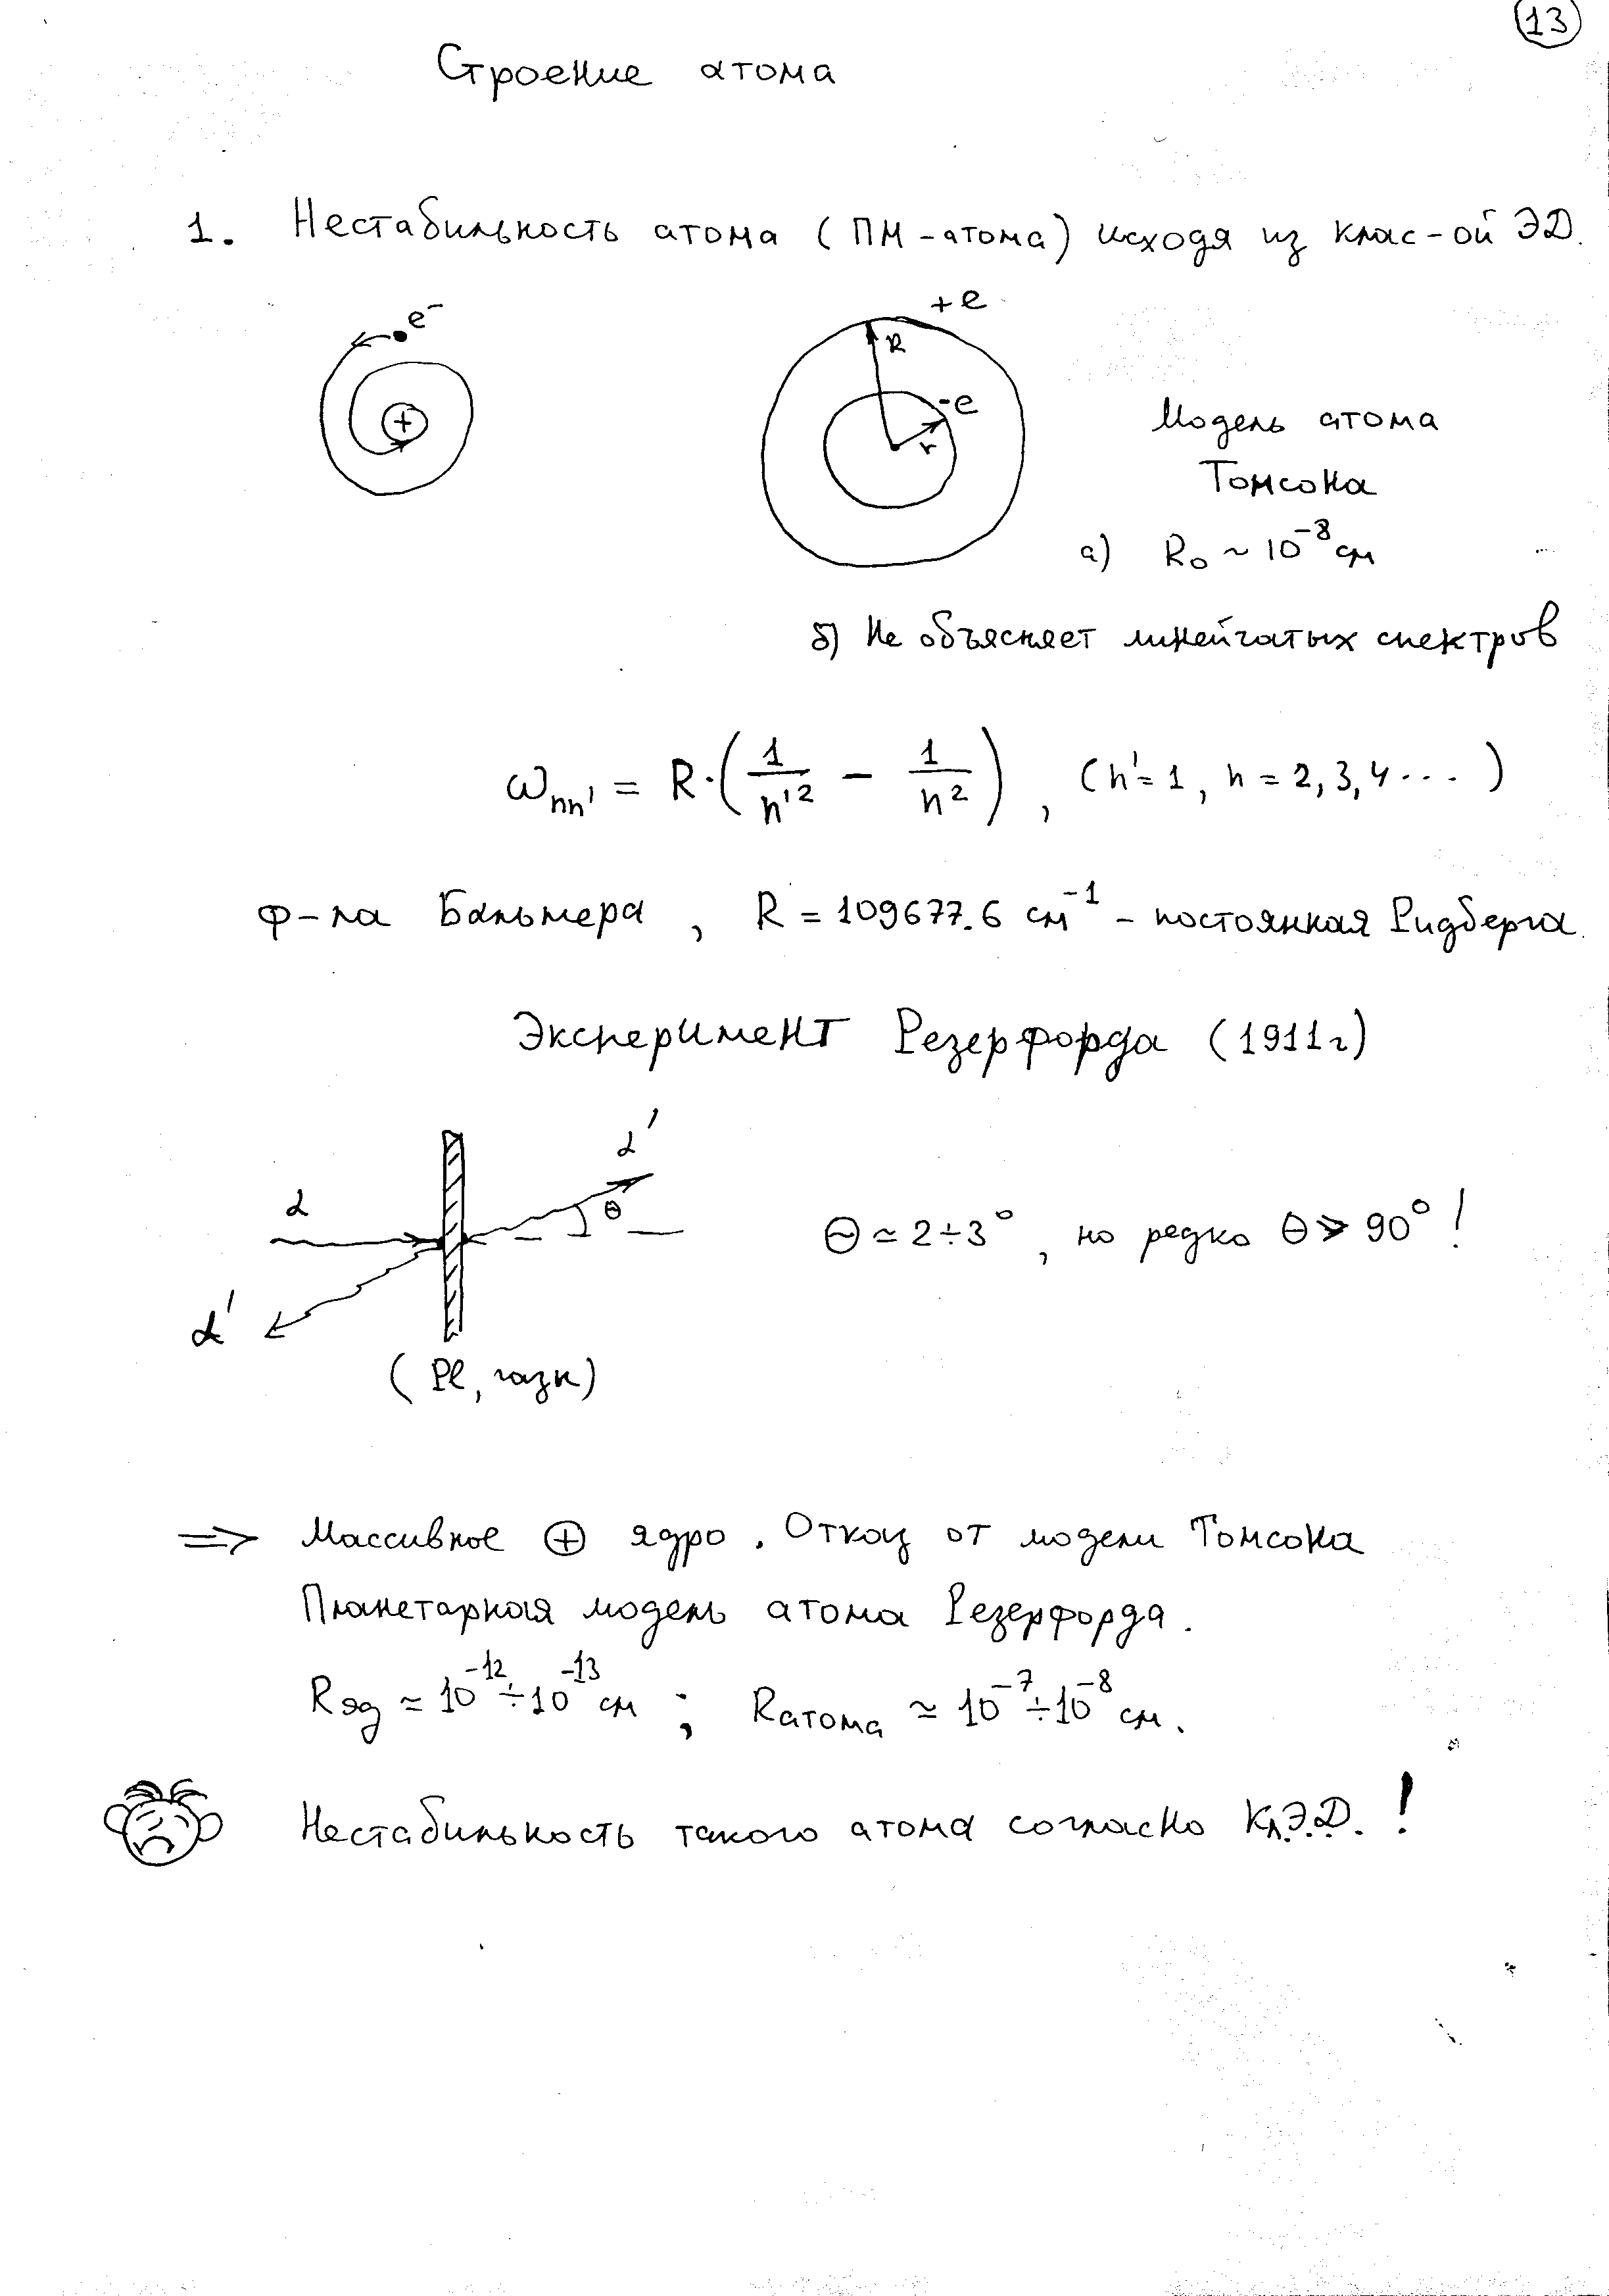 13
Строение атома
1. Нестабильность атома (ПМ-атома) исходя из клас-ой ЭД.
e⁻
+
+e
R
-e
r
Модель атома
Томсона
а) R₀ ~ 10⁻⁸ см
б) Не объясняет линейчатых спектров
ωₙₙ' = R·(1/n'² − 1/n²), (n'=1, n = 2,3,4...)
ф-ла Бальмера, R = 109677.6 см⁻¹ - постоянная Ридберга.
Эксперимент Резерфорда (1911г)
α α' θ
Θ ≃ 2÷3°, но редко Θ ⩾ 90°!
α'
(Pl, газы)
⇒ Массивное ⊕ ядро. Отказ от модели Томсона
Планетарная модель атома Резерфорда.
Rяд ≃ 10⁻¹²÷10⁻¹³ см ; Rатома ≃ 10⁻⁷÷10⁻⁸ см.
Нестабильность такого атома согласно Кл.Э.Д.!